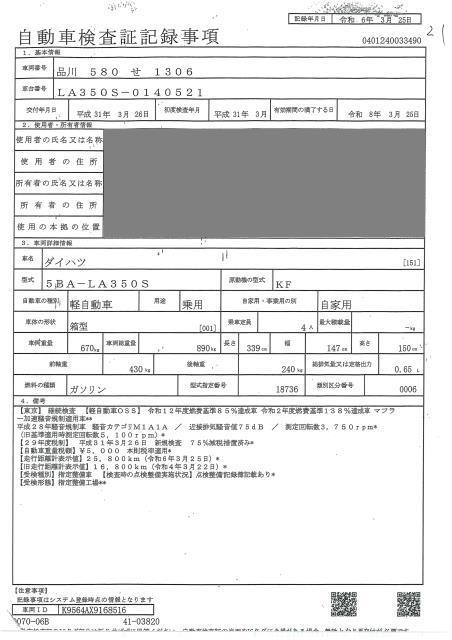 記録年月日 令和 6年 3月 25日
自動車検査証記録事項
0401240033490
21
1．基本情報
車両番号 品川 580 せ 1306
車台番号 LA350S-0140521
交付年月日 平成31年 3月 26日 初度検査年月 平成31年 3月 有効期間の満了する日 令和 8年 3月 25日
2．使用者・所有者情報
使用者の氏名又は名称
使用者の住所
所有者の氏名又は名称
所有者の住所
使用の本拠の位置
3．車両詳細情報
車名 ダイハツ [151]
型式 5BA-LA350S 原動機の型式 KF
自動車の種別 軽自動車 用途 乗用 自家用・事業用の別 自家用
車体の形状 箱型 [001] 乗車定員 4人 最大積載量 -kg
車両重量 670kg 車両総重量 890kg 長さ 339cm 幅 147cm 高さ 150cm
前軸重 430kg 後軸重 240kg 総排気量又は定格出力 0.65 L
燃料の種類 ガソリン 型式指定番号 18736 類別区分番号 0006
4．備考
【東京】 継続検査 【軽自動車OSS】 令和12年度燃費基準85%達成車 令和2年度燃費基準138%達成車 マフラ
ー加速騒音規制適用車**
平成28年騒音規制車 騒音カテゴリM1A1A ／ 近接排気騒音値75dB ／ 測定回転数3,750rpm*
(旧基準適用時測定回転数5,100rpm)*
【29年度税制】 平成31年3月26日 新規検査 75%減税措置済み*
【自動車重量税額】 ¥5,000 本則税率適用*
【走行距離計表示値】 25,800km (令和6年3月25日)*
【旧走行距離計表示値】 16,800km (令和4年3月22日)*
【受検種別】 指定整備車 【検査時の点検整備実施状況】 点検整備記録簿記載あり*
【受検形態】 指定整備工場**
【注意事項】
記録事項はシステム登録時点の情報となります
車両ID K9564AX9168516
070-06B 41-03820